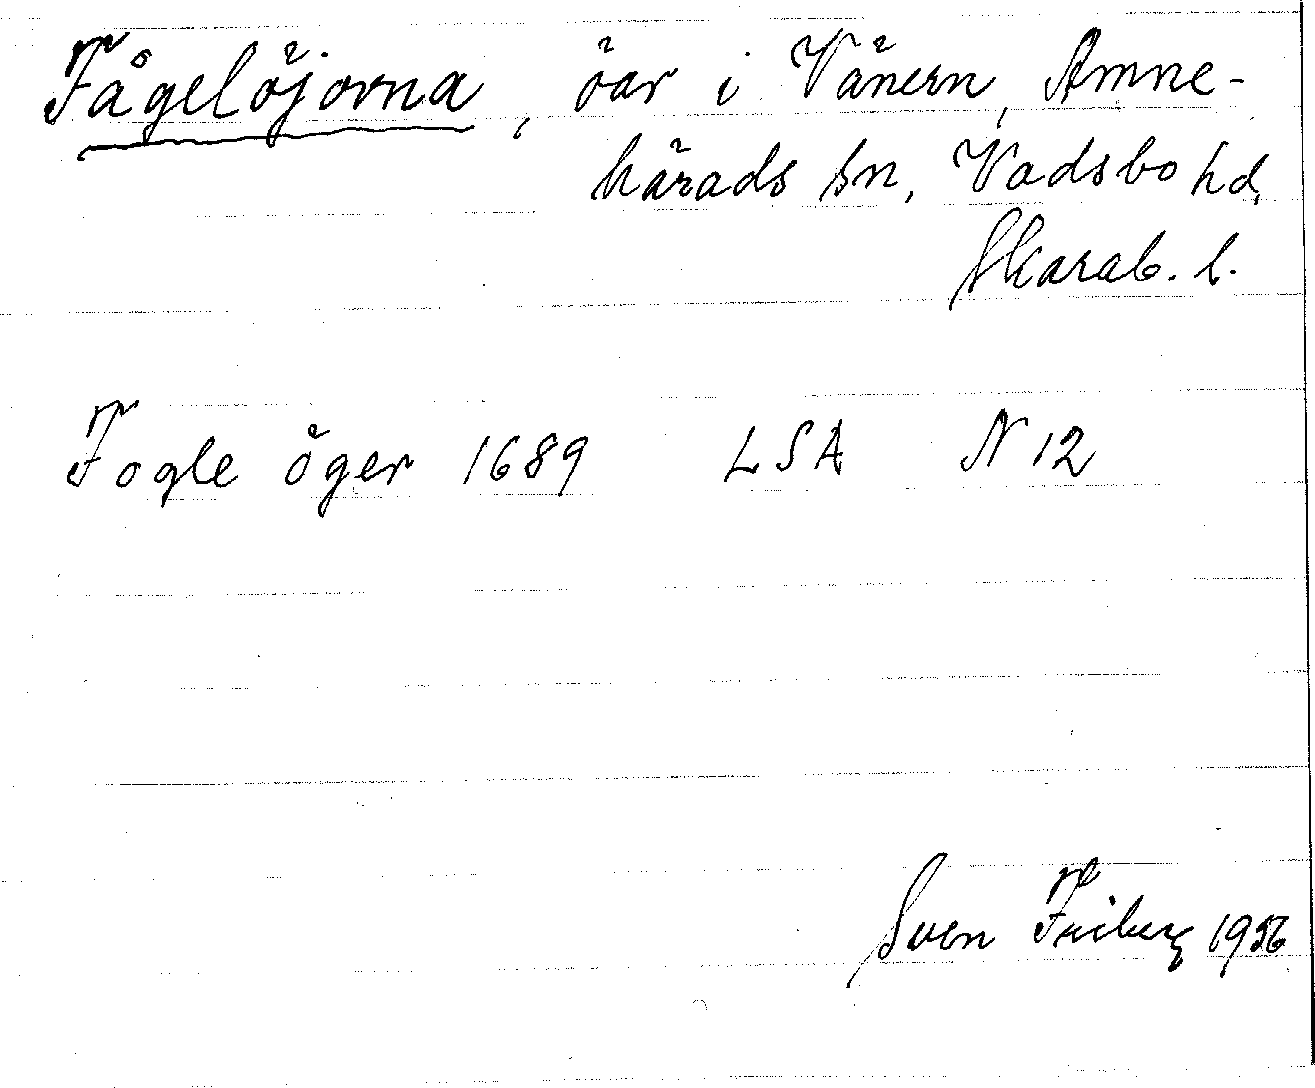 Fågelöjorna, öar i Vänern, Amne-
härads sn, Vadsbo hd,
Skarab. l.
Fogle öger 1689 LSA N 12
Sven Friberg 1956